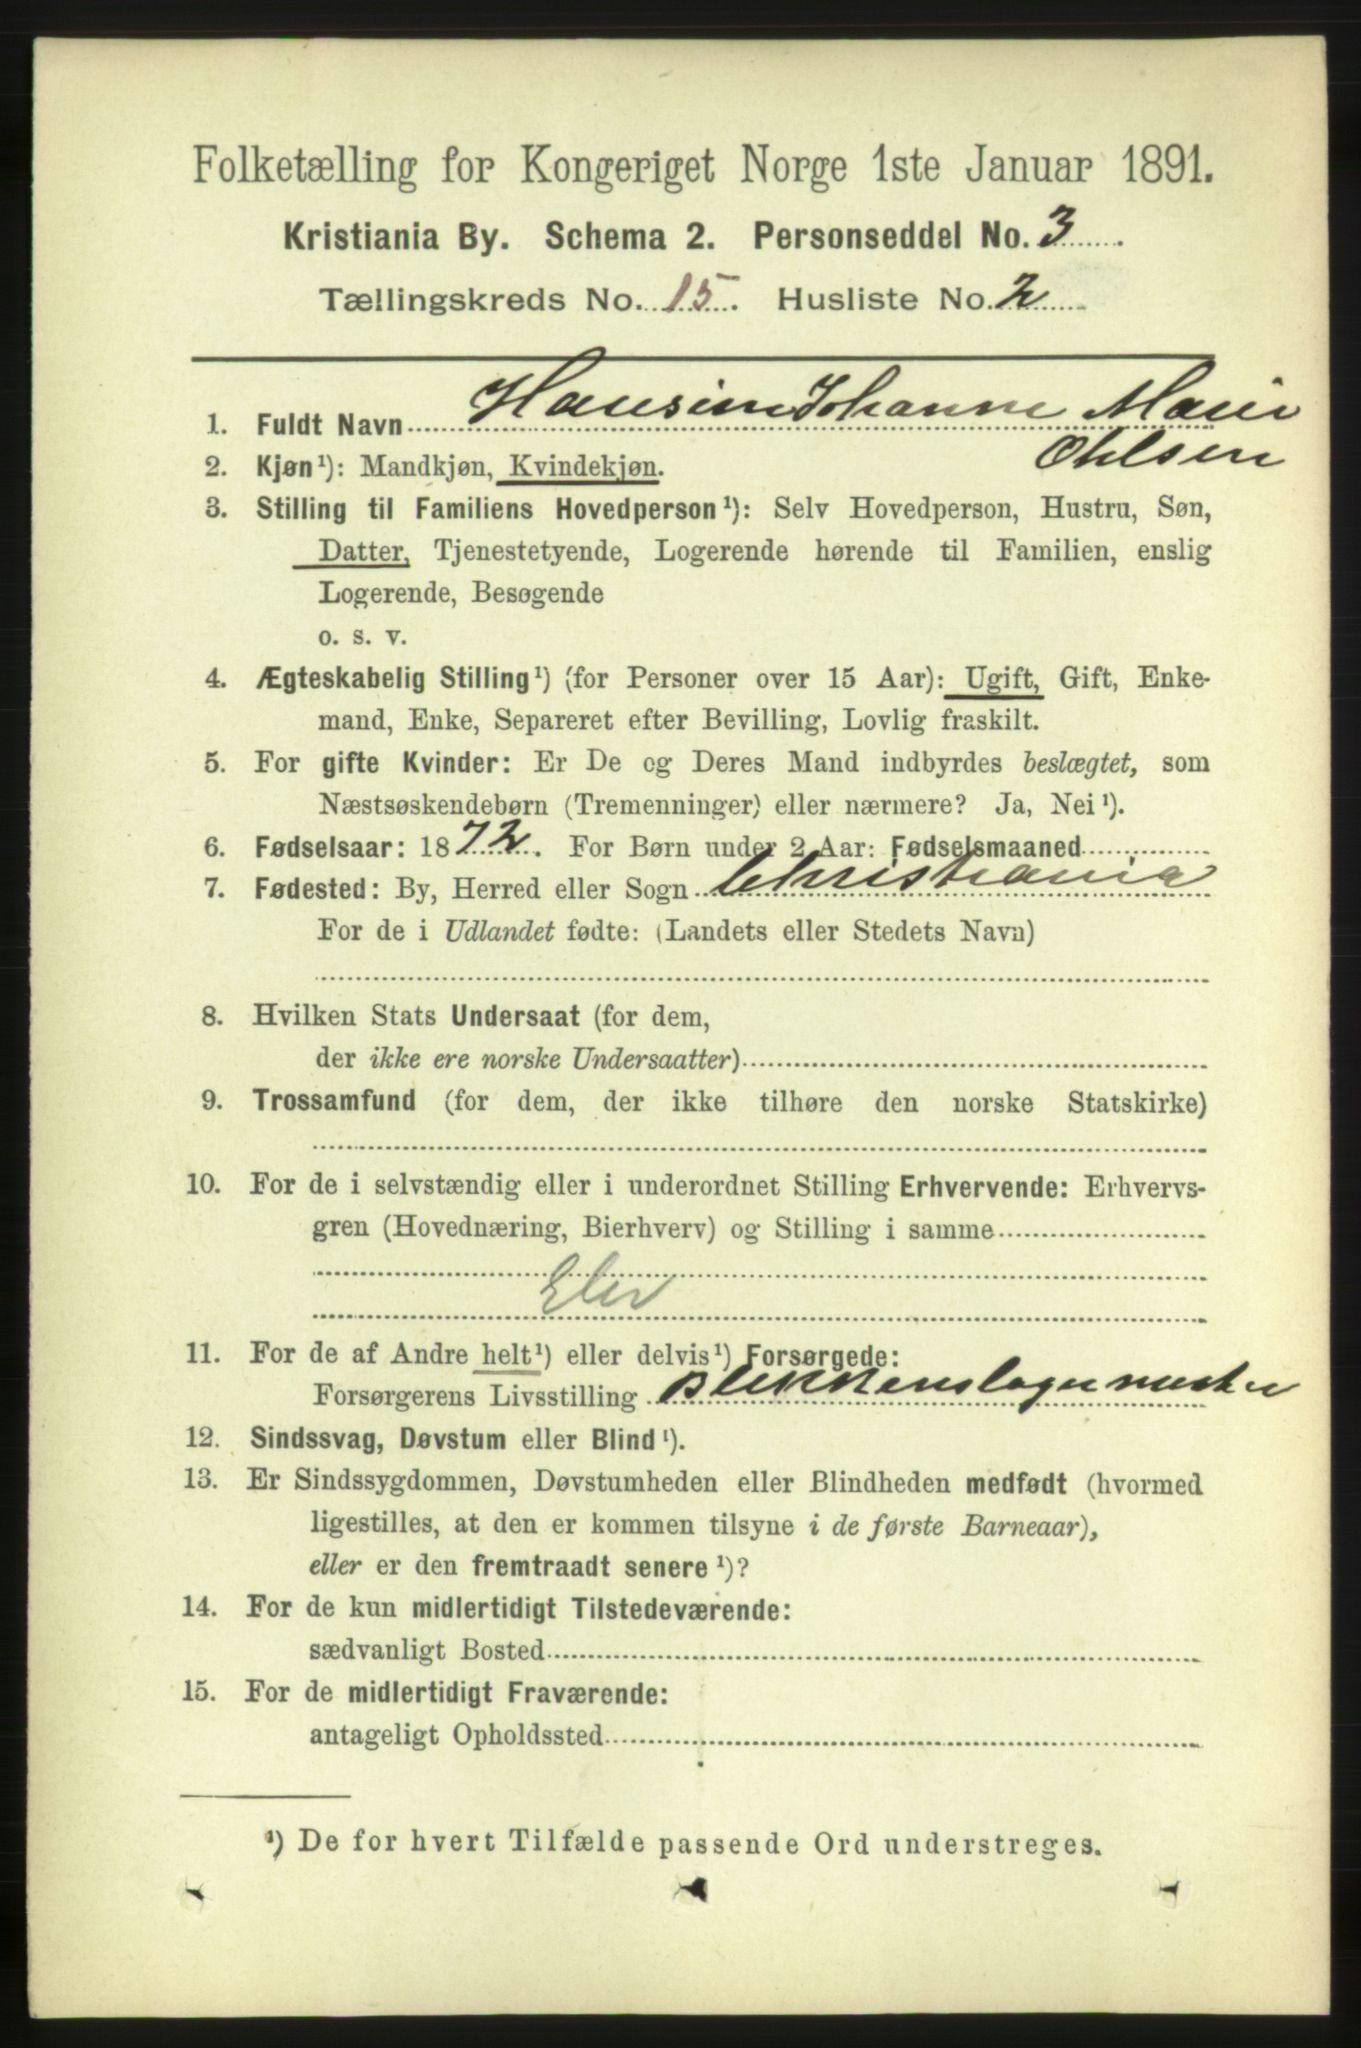 Folketælling for Kongeriget Norge 1ste Januar 1891.
Kristiania By. Schema 2. Personseddel No. 3
Tællingskreds No. 15. Husliste No. 2
1. Fuldt Navn Hansine Johanne Marie
Ohlsen
2. Kjøn¹): Mandkjøn, Kvindekjøn.
3. Stilling til Familiens Hovedperson¹): Selv Hovedperson, Hustru, Søn,
Datter, Tjenestetyende, Logerende hørende til Familien, enslig
Logerende, Besøgende
o. s. v.
4. Ægteskabelig Stilling¹) (for Personer over 15 Aar): Ugift, Gift, Enke-
mand, Enke, Separeret efter Bevilling, Lovlig fraskilt.
5. For gifte Kvinder: Er De og Deres Mand indbyrdes beslægtet, som
Næstsøskendebørn (Tremenninger) eller nærmere? Ja, Nei¹).
6. Fødselsaar: 1872. For Børn under 2 Aar: Fødselsmaaned
7. Fødested: By, Herred eller Sogn Christiania
For de i Udlandet fødte: (Landets eller Stedets Navn)
8. Hvilken Stats Undersaat (for dem,
der ikke ere norske Undersaatter)
9. Trossamfund (for dem, der ikke tilhøre den norske Statskirke)
10. For de i selvstændig eller i underordnet Stilling Erhvervende: Erhvervs-
gren (Hovednæring, Bierhverv) og Stilling i samme
Elev
11. For de af Andre helt¹) eller delvis¹) Forsørgede:
Forsørgerens Livsstilling Blikkenslagermester
12. Sindssvag, Døvstum eller Blind¹).
13. Er Sindssygdommen, Døvstumheden eller Blindheden medfødt (hvormed
ligestilles, at den er kommen tilsyne i de første Barneaar),
eller er den fremtraadt senere¹)?
14. For de kun midlertidigt Tilstedeværende:
sædvanligt Bosted
15. For de midlertidigt Fraværende:
antageligt Opholdssted
¹) De for hvert Tilfælde passende Ord understreges.